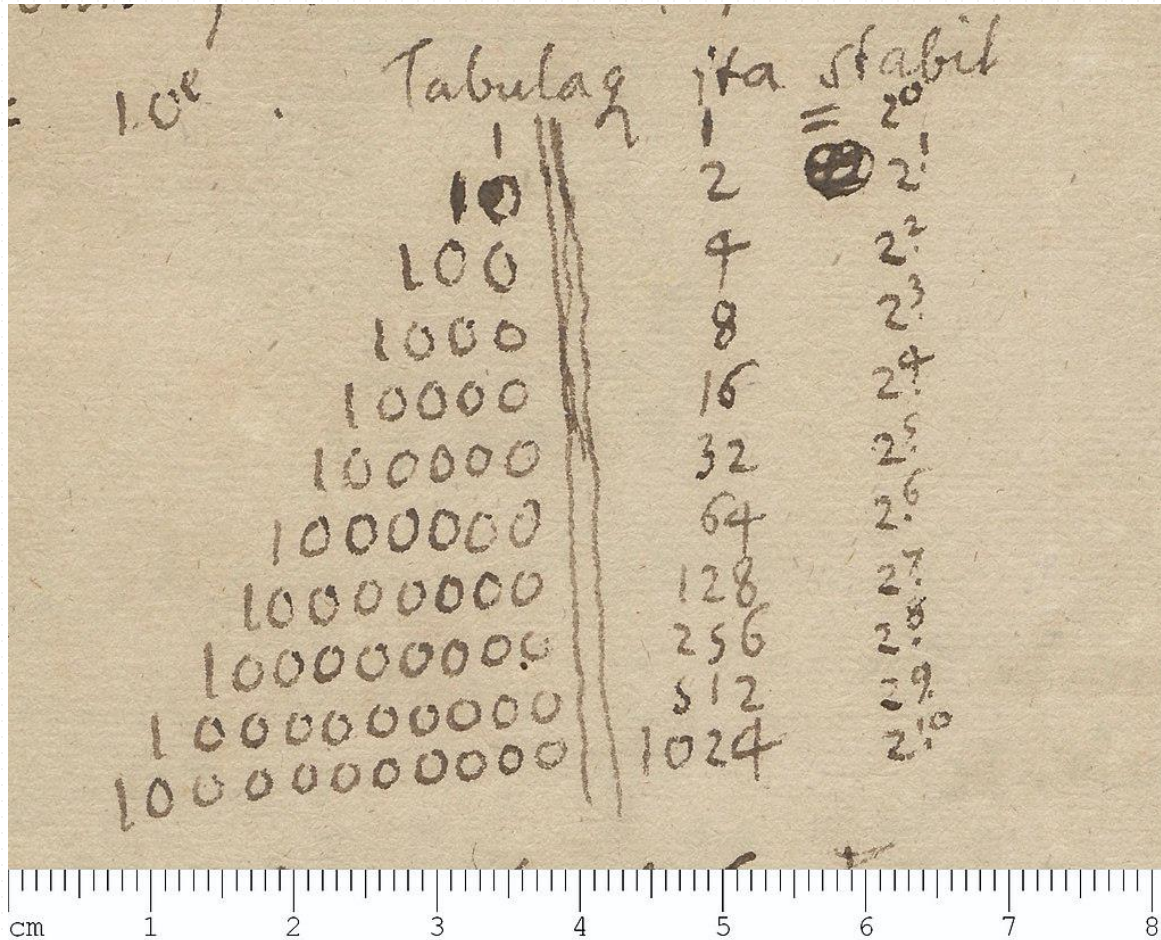 10^e . Tabulaq ita stabil
1 1 = 2^0
10 2 2^1
100 4 2^2
1000 8 2^3
10000 16 2^4
100000 32 2^5
1000000 64 2^6
10000000 128 2^7
100000000 256 2^8
1000000000 512 2^9
10000000000 1024 2^10
cm 1 2 3 4 5 6 7 8